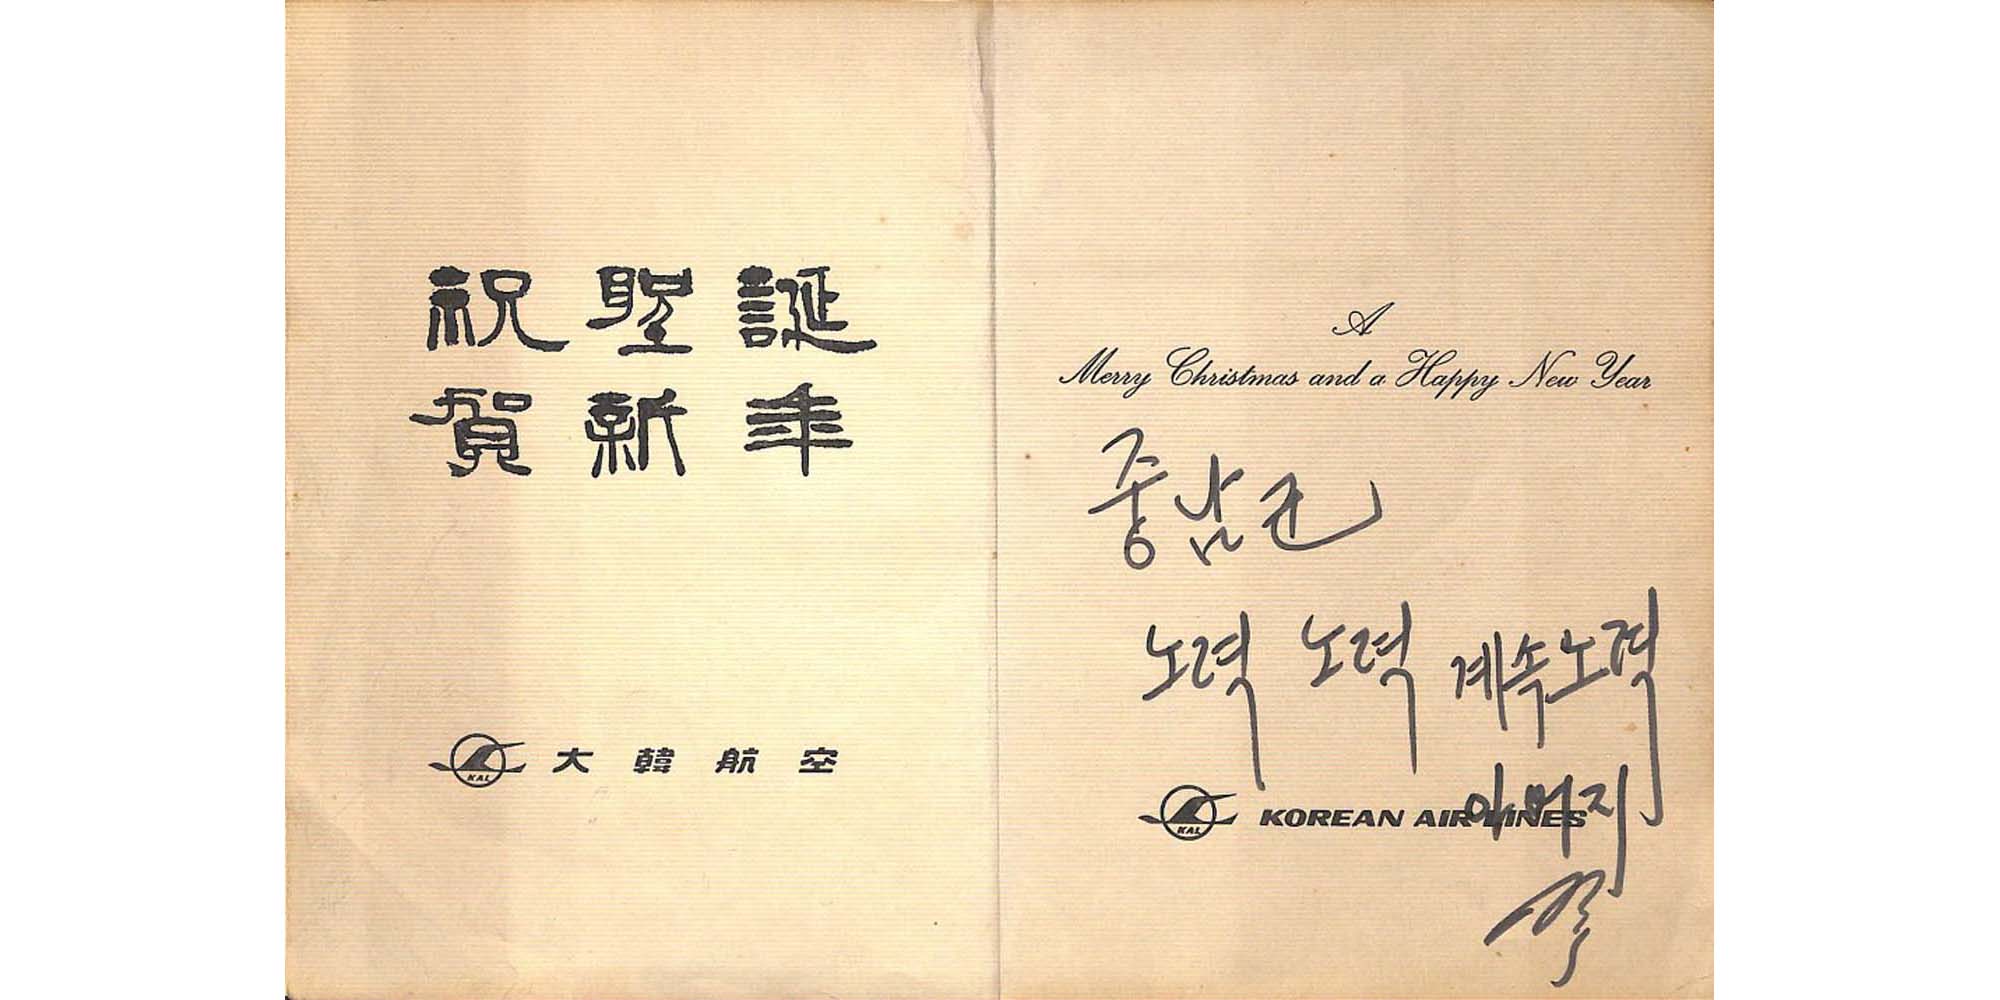 祝聖誕
賀新年
KAL 大韓航空
A
Merry Christmas and a Happy New Year
중남군
노력 노력 계속노력
KAL KOREAN AIR LINES
아버지